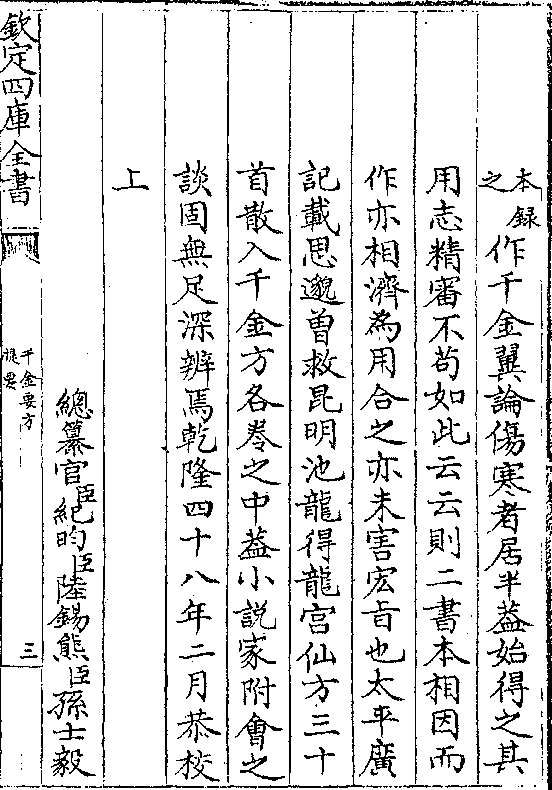 本録
之
作千金翼論傷寒者居半葢始得之其
用志精審不苟如此云云則二書本相因而
作亦相濟為用合之亦未害宏旨也太平廣
記載思邈曽救昆明池龍得龍宫仙方三十
首散入千金方各卷之中葢小説家附會之
談固無足深辨焉乾隆四十八年二月恭校
上
總纂官臣紀昀臣陸錫熊臣孫士毅
欽定四庫全書
千金要方
提要
三